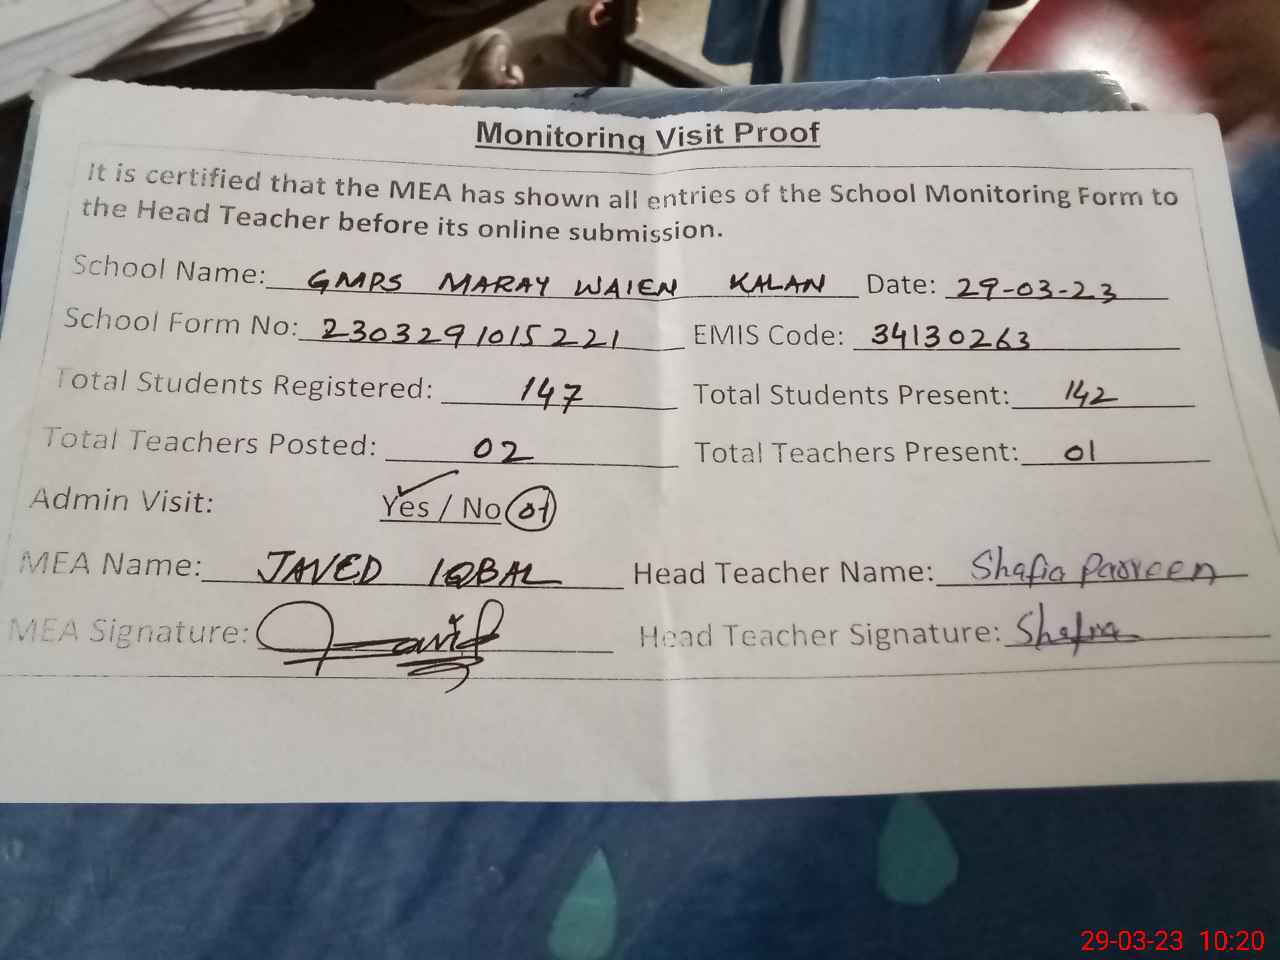 Monitoring Visit Proof
It is certified that the MEA has shown all entries of the School Monitoring Form to
the Head Teacher before its online submission.
School Name: GMPS MARAY WAIEN KALAN Date: 29-03-23
School Form No: 2303291015221 EMIS Code: 34130263
Total Students Registered: 147 Total Students Present: 142
Total Teachers Posted: 02 Total Teachers Present: 01
Admin Visit: Yes / No 01
MEA Name: JAVED IQBAL Head Teacher Name: Shafia Parveen
MEA Signature: Javid Head Teacher Signature: Shafia
29-03-23 10:20